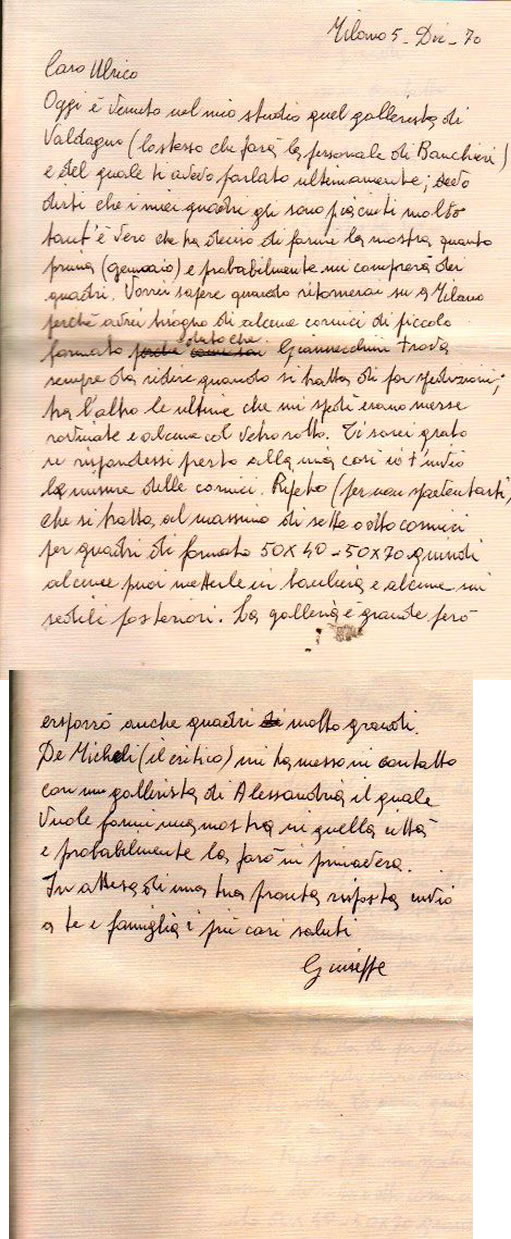 Milano 5 - Dic - 70
Caro Ulrico
Oggi è venuto nel mio studio quel gallerista di
Valdagno (lo stesso che farà la personale di Banchieri)
e del quale ti avevo parlato ultimamente; devo
dirti che i miei quadri gli sono piaciuti molto
tant'è vero che ha deciso di farmi la mostra quanto
prima (gennaio) e probabilmente mi comprerà dei
quadri. Vorrei sapere quando ritornerai su a Milano
perchè avrei bisogno di alcune cornici di piccolo
formato dato che Giannecchini trova
sempre da ridire quando si tratta di far spedizioni;
tra l'altro le ultime che mi spedì erano messe
rovinate e alcune col vetro rotto. Ti sarei grato
se rispondessi presto alla mia così io t'invio
le misure delle cornici. Ripeto (per non spaventarti)
che si tratta al massimo di sette o otto cornici
per quadri di formato 50x40 - 50x70 quindi
alcune puoi metterle in bauliera e alcune sui
sedili posteriori. La galleria è grande però
esporrò anche quadri molto grandi.
De Micheli (il critico) mi ha messo in contatto
con un gallerista di Alessandria il quale
vuole farmi una mostra in quella città
e probabilmente la farò in primavera.
In attesa di una tua pronta risposta invio
a te e famiglia i più cari saluti
Giuseffe